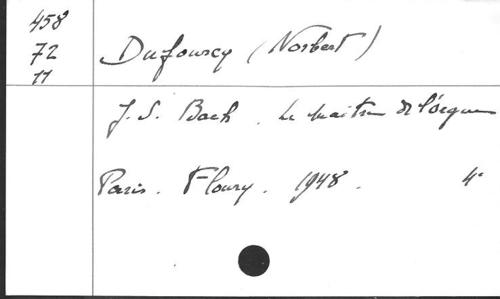 458
72
11
Dufourcq (Norbert)
J. S. Bach. Le maître de l'orgue
Paris. Floury. 1948. 4°